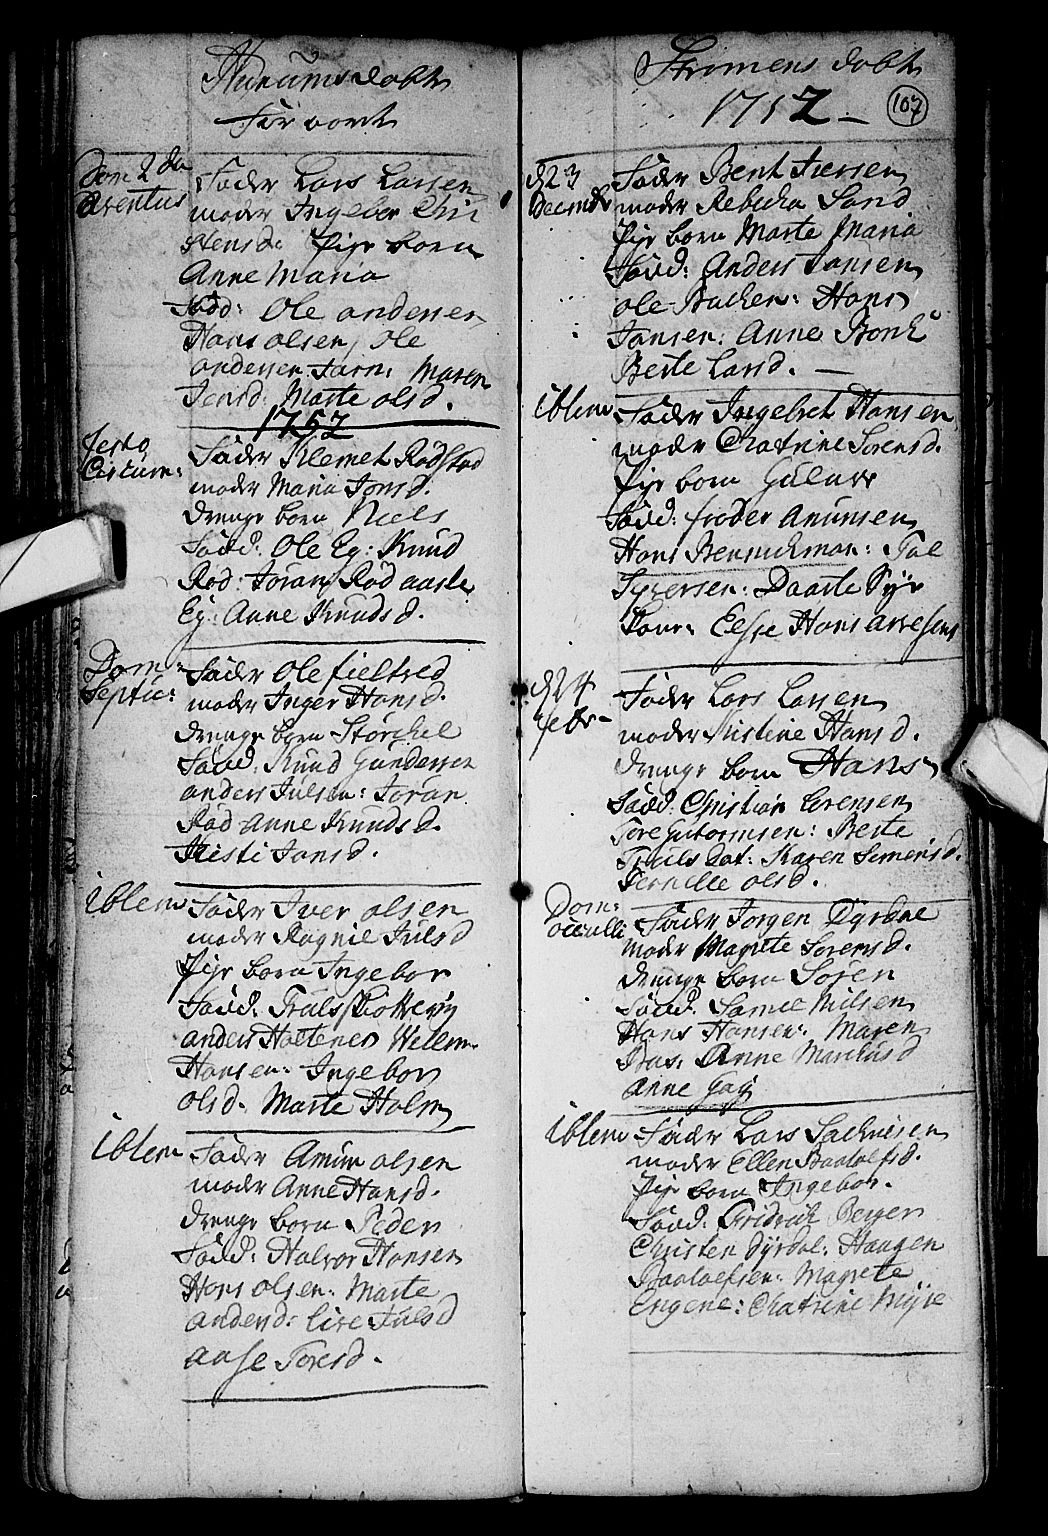 Hurums døbte
før vort
Dom 2 da
Aventus
Fader Lars Larsen
moder Ingebor Chri
stensd: Pije born
Anne Maria
Fadd: Ole andersen
Hans olsen, Ole
andersen Tørn: Maren
Jensd: Marte olsd.
1752
Festo
Fader Klemet Rødstad
moder Maria Jonsd.
drenge born Niels
Fadd: Ole Eg: Knud
Rød: Joran Rød aaste
Eg: Anne Knudsd.
Dom:
Septu:
Fader Ole fieltred
moder Inger Hansd.
drenge born Størchel
Fadd: Knud Gundersen
anders Julsen: Joran
Rød Anne Knudsd.
Kisti Jansd.
iblem
Fader Iver olsen
moder Ragnil Julsd
Pije born Ingebor
Fadd: Truls
anders Holtenes Wilem
Hansen: Ingebor
olsd. Marte Holm
iblem
Fader Amun olsen
moder Anne Hansd.
drenge born Peder
Fadd: Halvor Hansen
Hans olsen: Marte
andersd: Live Julsd
aase Toresd.
Strømens døbte
1752 107
d 23
Decembr
Fader Bent Iversen
moder Rebecha Sand
Pije born Marte Maria
Fadd: Anders Jansen
ole Bachen: Hans
Jansen: Anne Bonh
Berte Larsd.
iblem
Fader Ingebret Hansen
moder Chatrine Sørensd.
Pije born Gulave
Fadd: froder Amunsen
Hans Bennichman: Pål
Syversen: Daarte Syv
Hans Arvesens
d 24
febr
Fader Lars Larsen
moder Kistine Hansd.
drenge born Hans
Fadd: Christian Sørensen
Tore Gutormsen: Berte
Truls dat: Karen Simensd.
Pernelle olsd.
Dom:
occulli
Fader Jørgen Dyrdal
moder Magrete Sørensd.
drenge born Søren
Fadd: Samuel Nilsen
Hans Hansen: Maren
Bas: Anne Marcusd
Anne Gag
iblem
Fader Lars Sachrisen
moder Ellen Baalolfsd.
Pije born Ingebor.
Fadd: Fridrich Berger
Christen Dyrdal: Haagen
Baaloelfsen: Magrete
Engene: Chatrine Myre